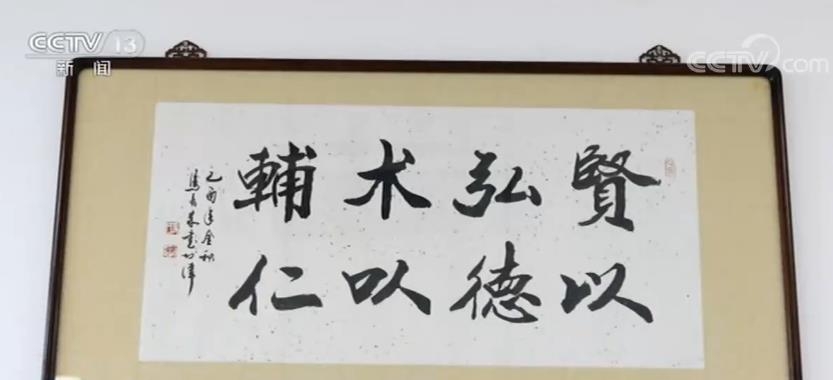 CCTV 13
新闻
CCTV.com
賢以
弘德
术以
輔仁
乙酉年金秋
書於津